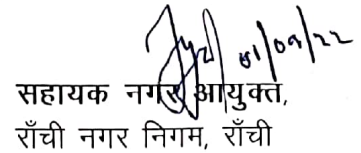 01/09/22
सहायक नगर आयुक्त,
राँची नगर निगम, राँची